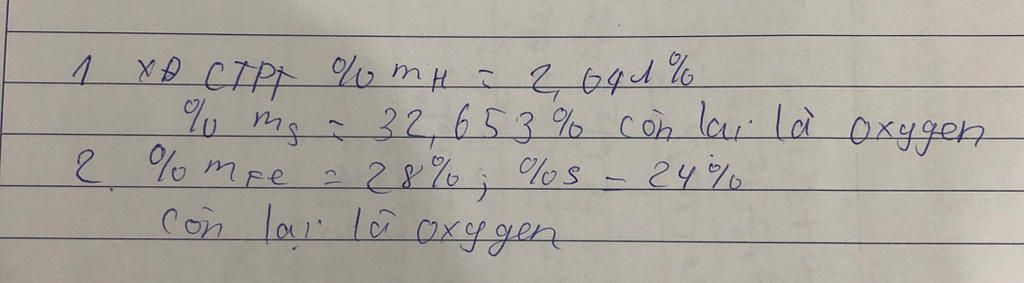 1 XĐ CTPT % mH = 2,041%
% mS = 32,653% còn lại là oxygen
2. % mFe = 28%; %S = 24%
còn lại là oxygen